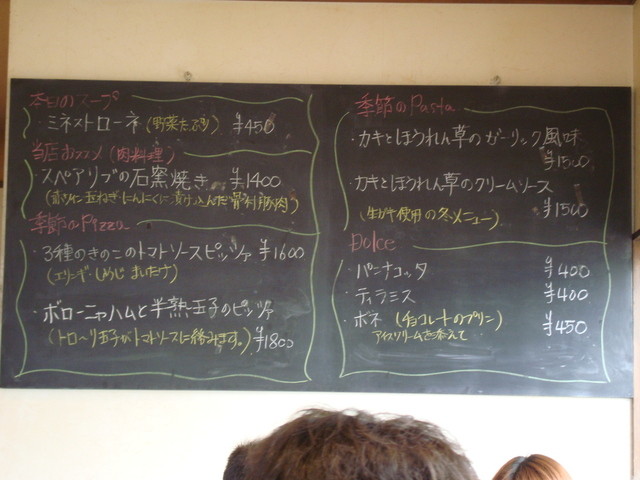 本日のスープ
・ミネストローネ(野菜たっぷり) ¥450
当店おススメ(肉料理)
・スペアリブの石窯焼き ¥1400
(赤ワイン玉ねぎにんにくに漬け込んだ骨付豚肉)
季節のPizza
・3種のきのこのトマトソースピッツァ ¥1600
(エリンギしめじまいたけ)
・ボローニャハムと半熟玉子のピッツァ
(トロ〜リ玉子がトマトソースに絡みます。) ¥1800
季節のPasta
・カキとほうれん草のガーリック風味
¥1500
・カキとほうれん草のクリームソース
¥1500
(生ガキ使用の冬メニュー)
Dolce
・パンナコッタ ¥400
・ティラミス ¥400
・ボネ(チョコレートのプリン) ¥450
アイスクリームを添えて